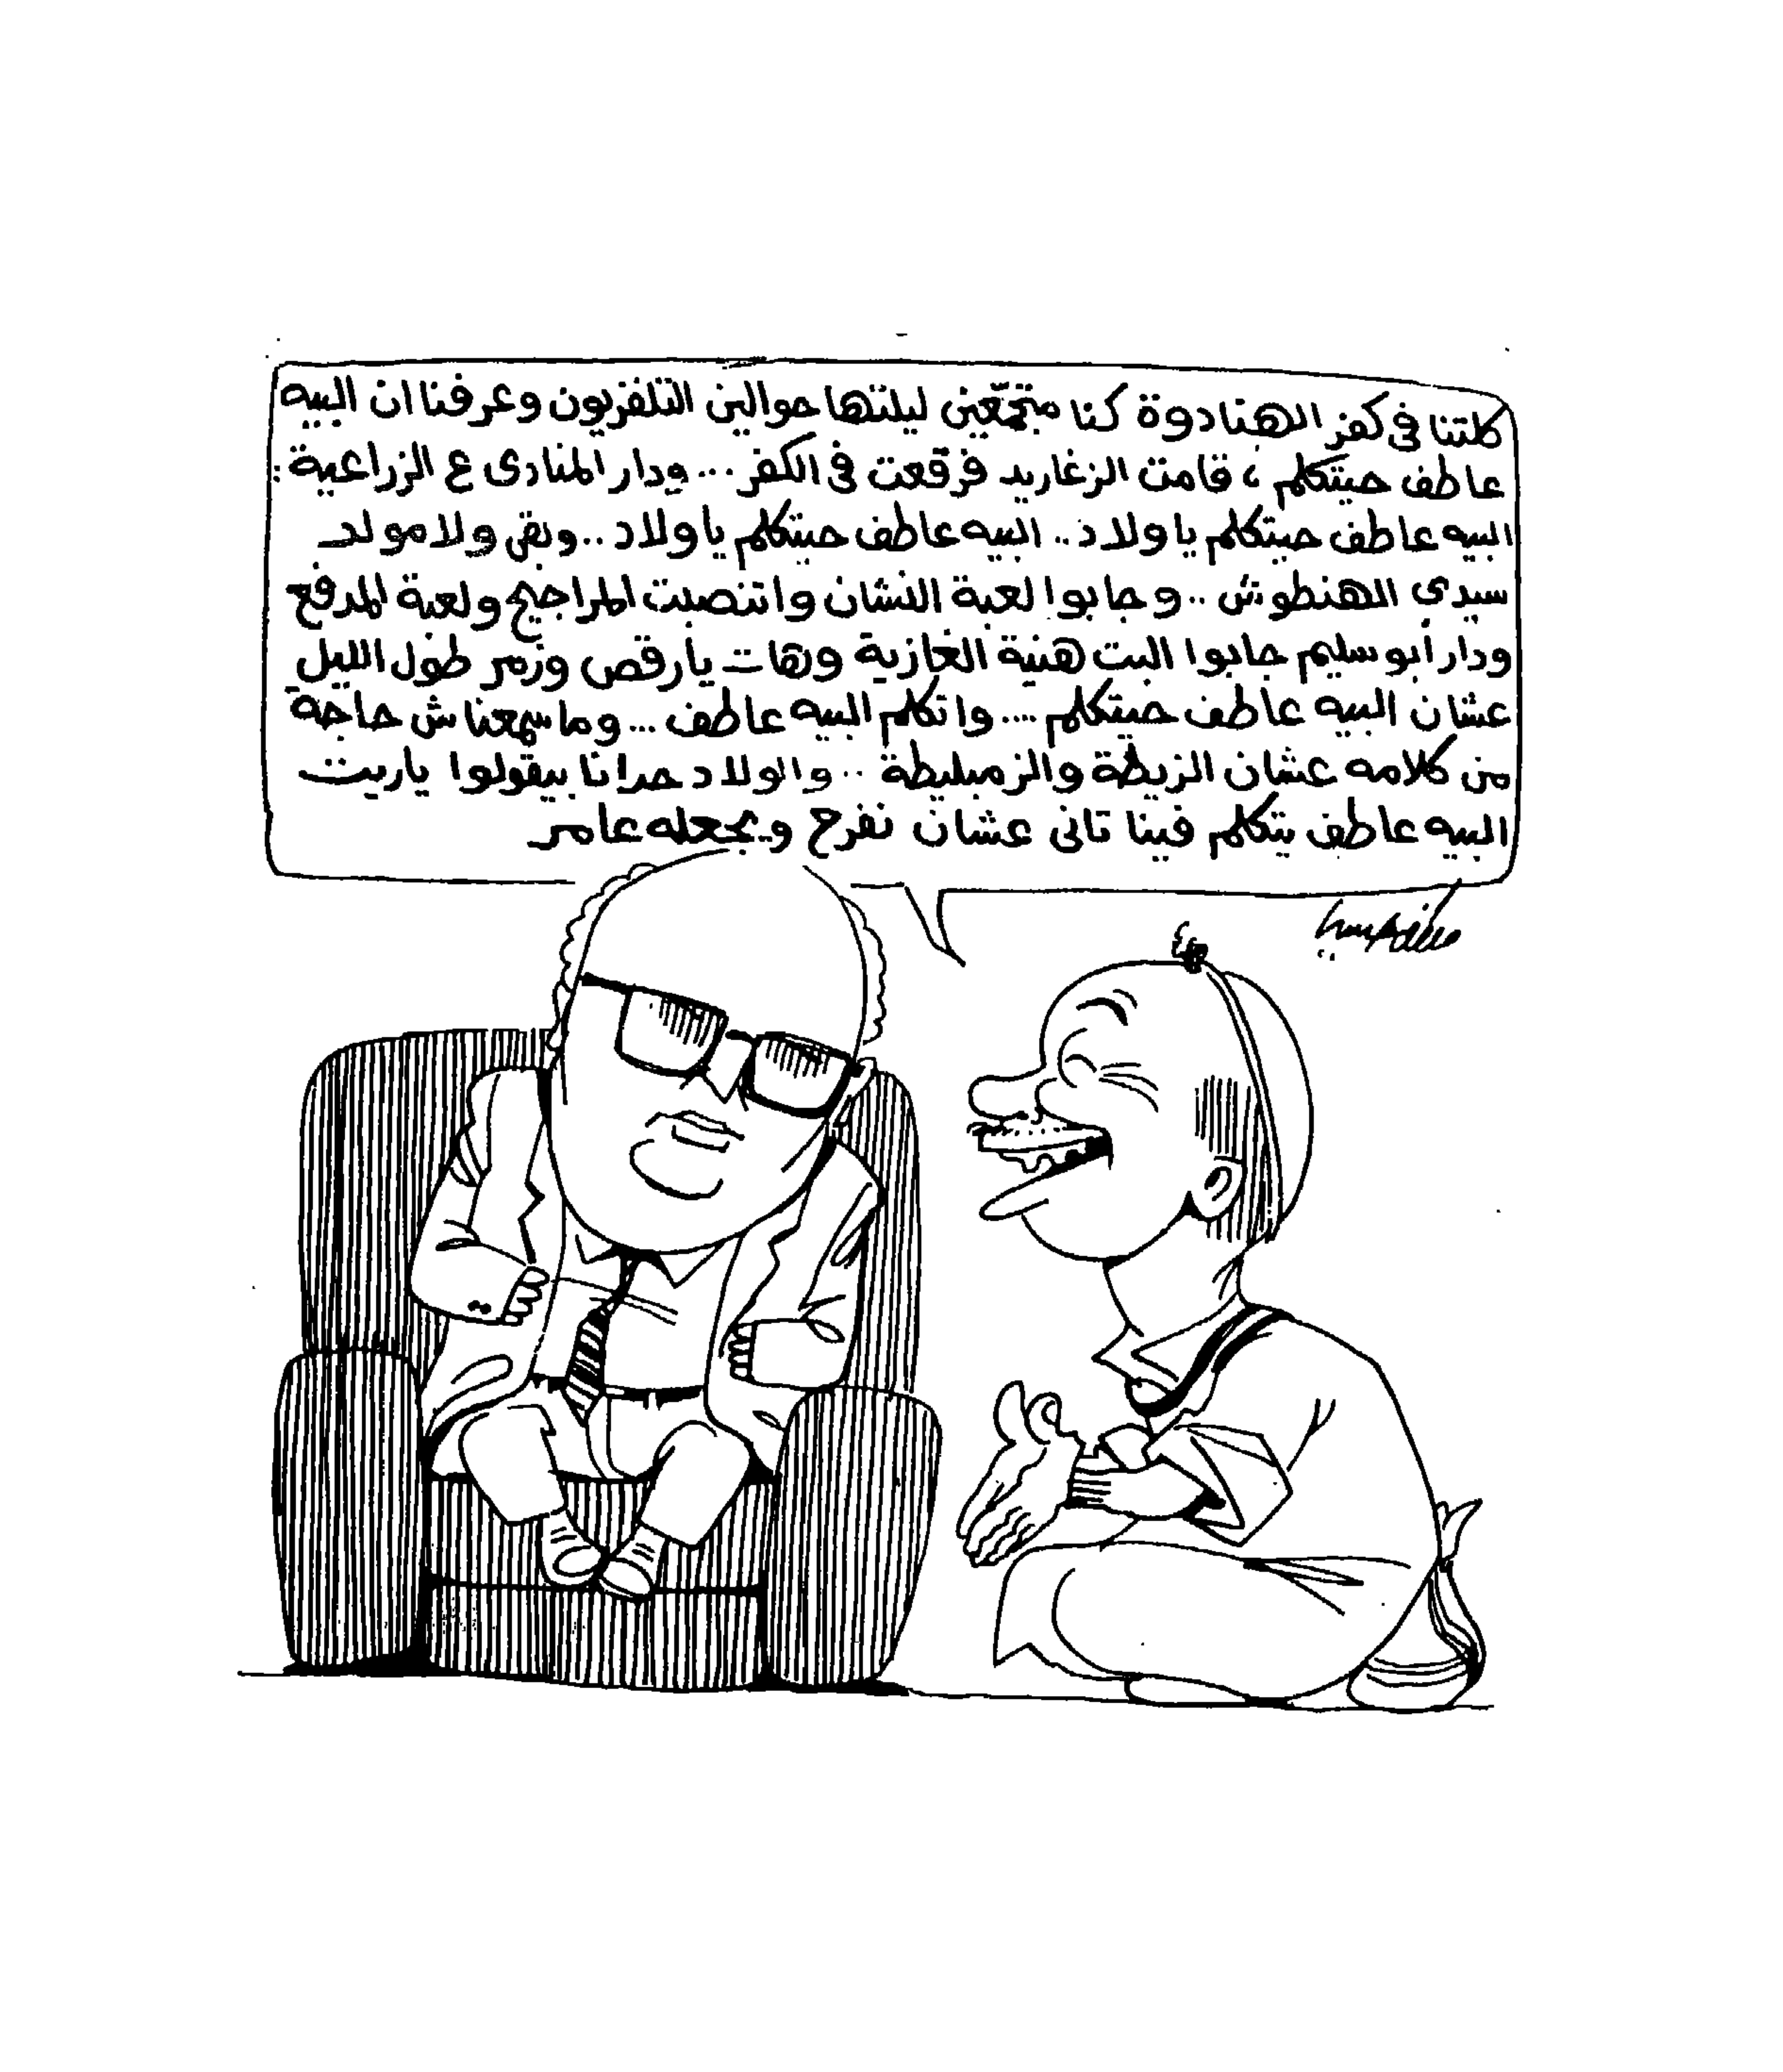 كلتنا فى كفر الهنادوة كنا متجمّعين ليلتها حوالين التلفزيون وعرفنا ان البيه
عاطف حيتكلم ، قامت الزغاريد فرقعت فى الكفر ... ودار المنادى ع الزراعية :
البيه عاطف حيتكلم ياولاد .. البيه عاطف حيتكلم ياولاد .. وبقى ولا مولد
سيدى الهنطوش .. وجابوا لعبة النشان واتنصبت المراجيح ولعبة المدفع
ودار ابو سليم جابوا البت هنية الغازية وهات يارقص وزمر طول الليل
عشان البيه عاطف حيتكلم .... واتكلم البيه عاطف ... وما سمعناش حاجة
من كلامه عشان الزيطة والزمبليطة .. والولاد حدانا بيقولوا ياريت
البيه عاطف يتكلم فينا تانى عشان نفرح ويجعله عامر